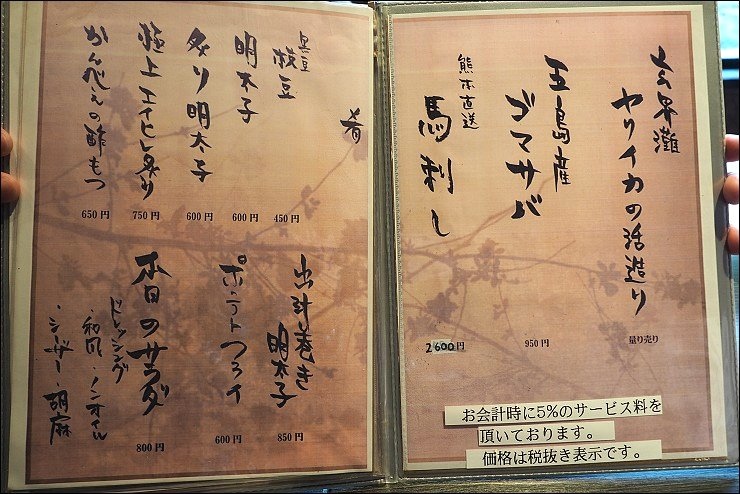 玄界灘
ヤリイカの活造り
量り売り
五島産
ゴマサバ
950円
熊本直送
馬刺し
2600円
お会計時に5%のサービス料を
頂いております。
価格は税抜き表示です。
肴
黒豆
枝豆
450円
明太子
600円
炙り明太子
600円
極上エイヒレ炙り
750円
かんべえの酢もつ
650円
出汁巻き
明太子
850円
ポテトフライ
600円
本日のサラダ
800円
ドレッシング
・和風・ノンオイル
・シーザー・胡麻